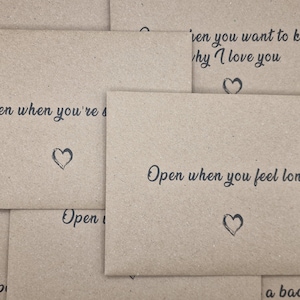 when you want to
why I love you
when you're
Open when you feel
Open
a